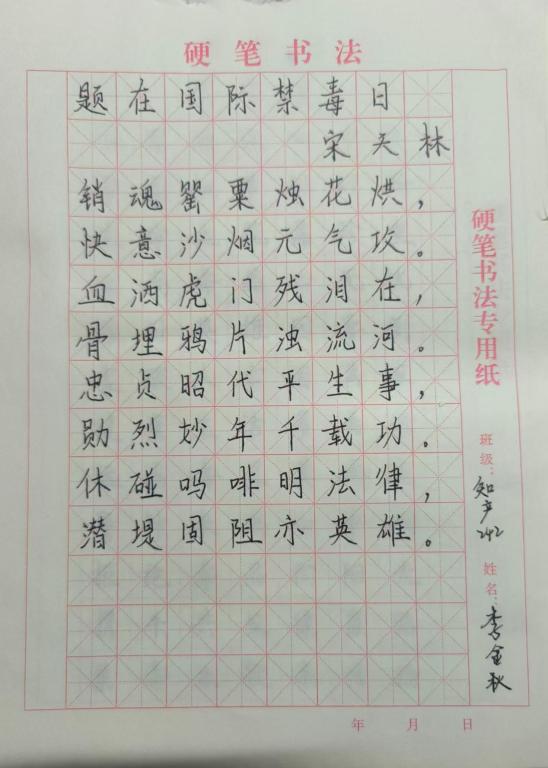 硬笔书法
题在国际禁毒日
宋天林
销魂罂粟烛花烘，
快意沙烟元气攻。
血洒虎门残泪在，
骨埋鸦片浊流河。
忠贞昭代平生事，
勋烈妙年千载功。
休碰吗啡明法律，
潜堤固阻亦英雄。
硬笔书法专用纸
班级：知产242
姓名：李金秋
年 月 日